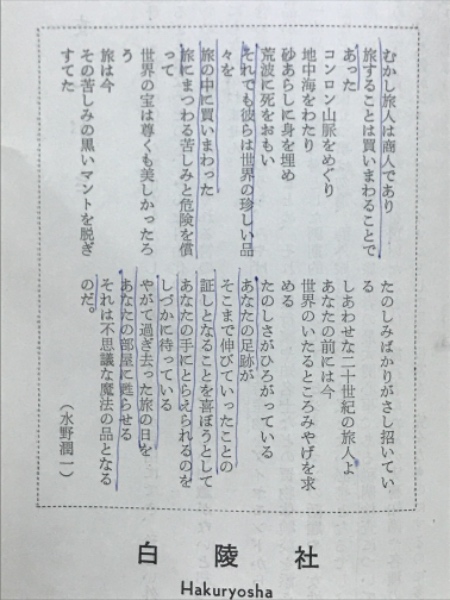 むかし旅人は商人であり
旅することは買いまわることで
あった
コンロン山脈をめぐり
地中海をわたり
砂あらしに身を埋め
荒波に死をおもい
それでも彼らは世界の珍しい品
々を
旅の中に買いまわった
旅にまつわる苦しみと危険を償
って
世界の宝は尊くも美しかったろ
う
旅は今
その苦しみの黒いマントを脱ぎ
すてた
たのしみばかりがさし招いてい
る
しあわせな二十世紀の旅人よ
あなたの前には今
世界のいたるところみやげを求
める
たのしさがひろがっている
あなたの足跡が
そこまで伸びていったことの
証しとなることを喜ぼうとして
あなたの手にとらえられるのを
しづかに待っている
やがて過ぎ去った旅の日を
あなたの部屋に甦らせる
それは不思議な魔法の品となる
のだ。
(水野潤一)
白陵社
Hakuryosha